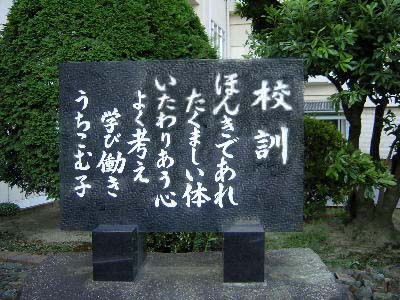 校訓
ほんきであれ
たくましい体
いたわりあう心
よく考え
学び働き
うちこむ子